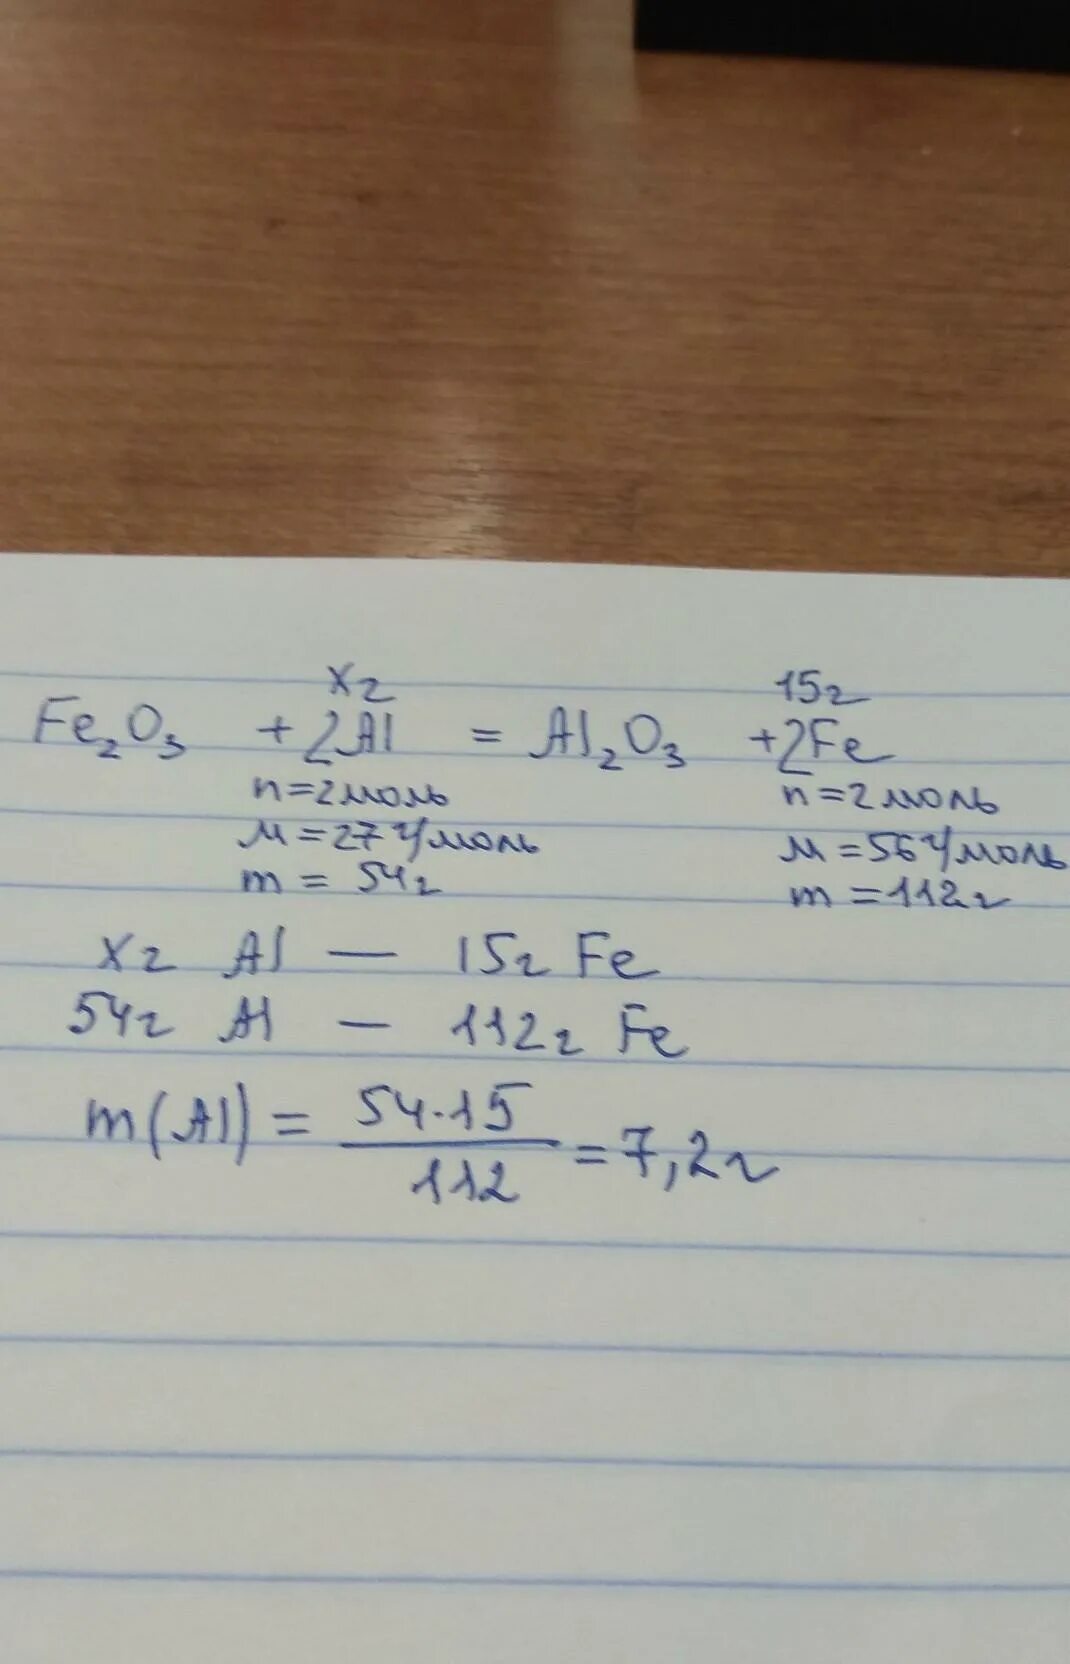 xг 15г
Fe₂O₃ + 2Al = Al₂O₃ + 2Fe
n = 2моль n = 2моль
M = 27 г/моль M = 56 г/моль
m = 54г m = 112г
xг Al — 15г Fe
54г Al — 112г Fe
m(Al) = 54·15 / 112 = 7,2г